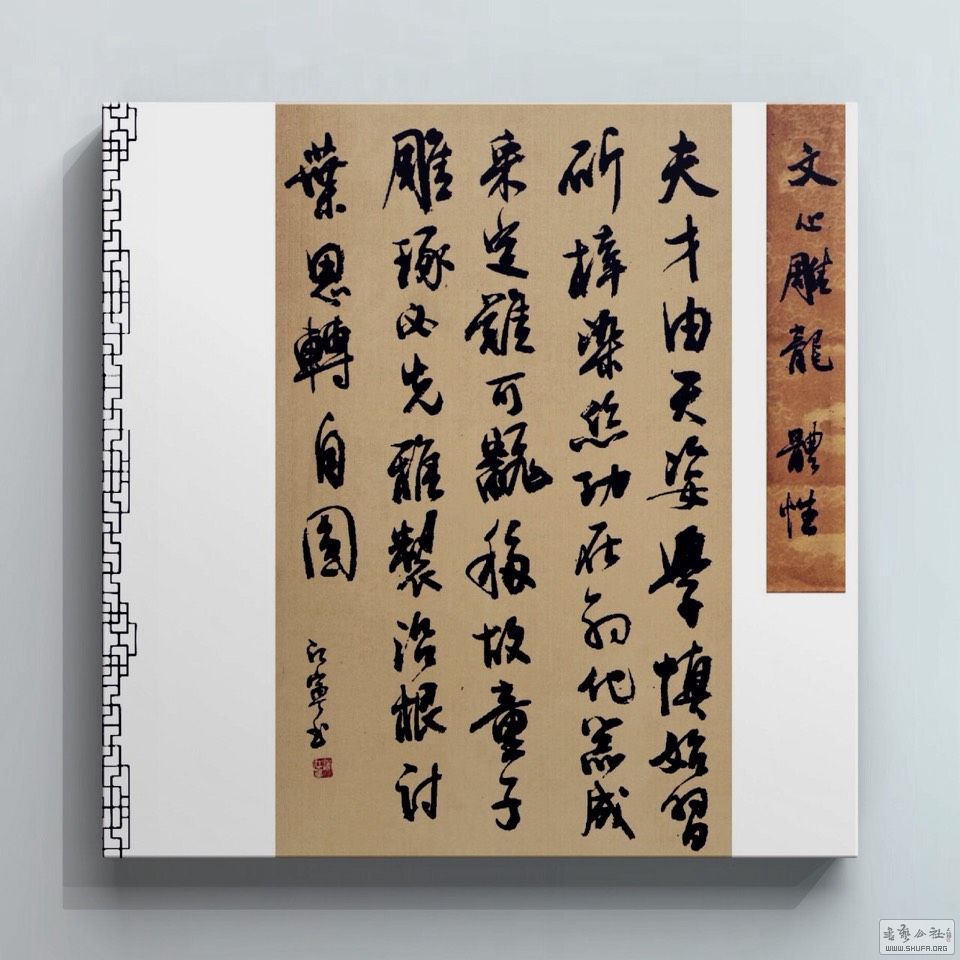 文心雕龍 體性
夫才由天姿學慎始習
斫梓染絲功在初化器成
采定難可飜移故童子
雕琢必先雅製沿根討
葉思轉自圓
江寧書
书艺公社
WWW.SHUFA.ORG